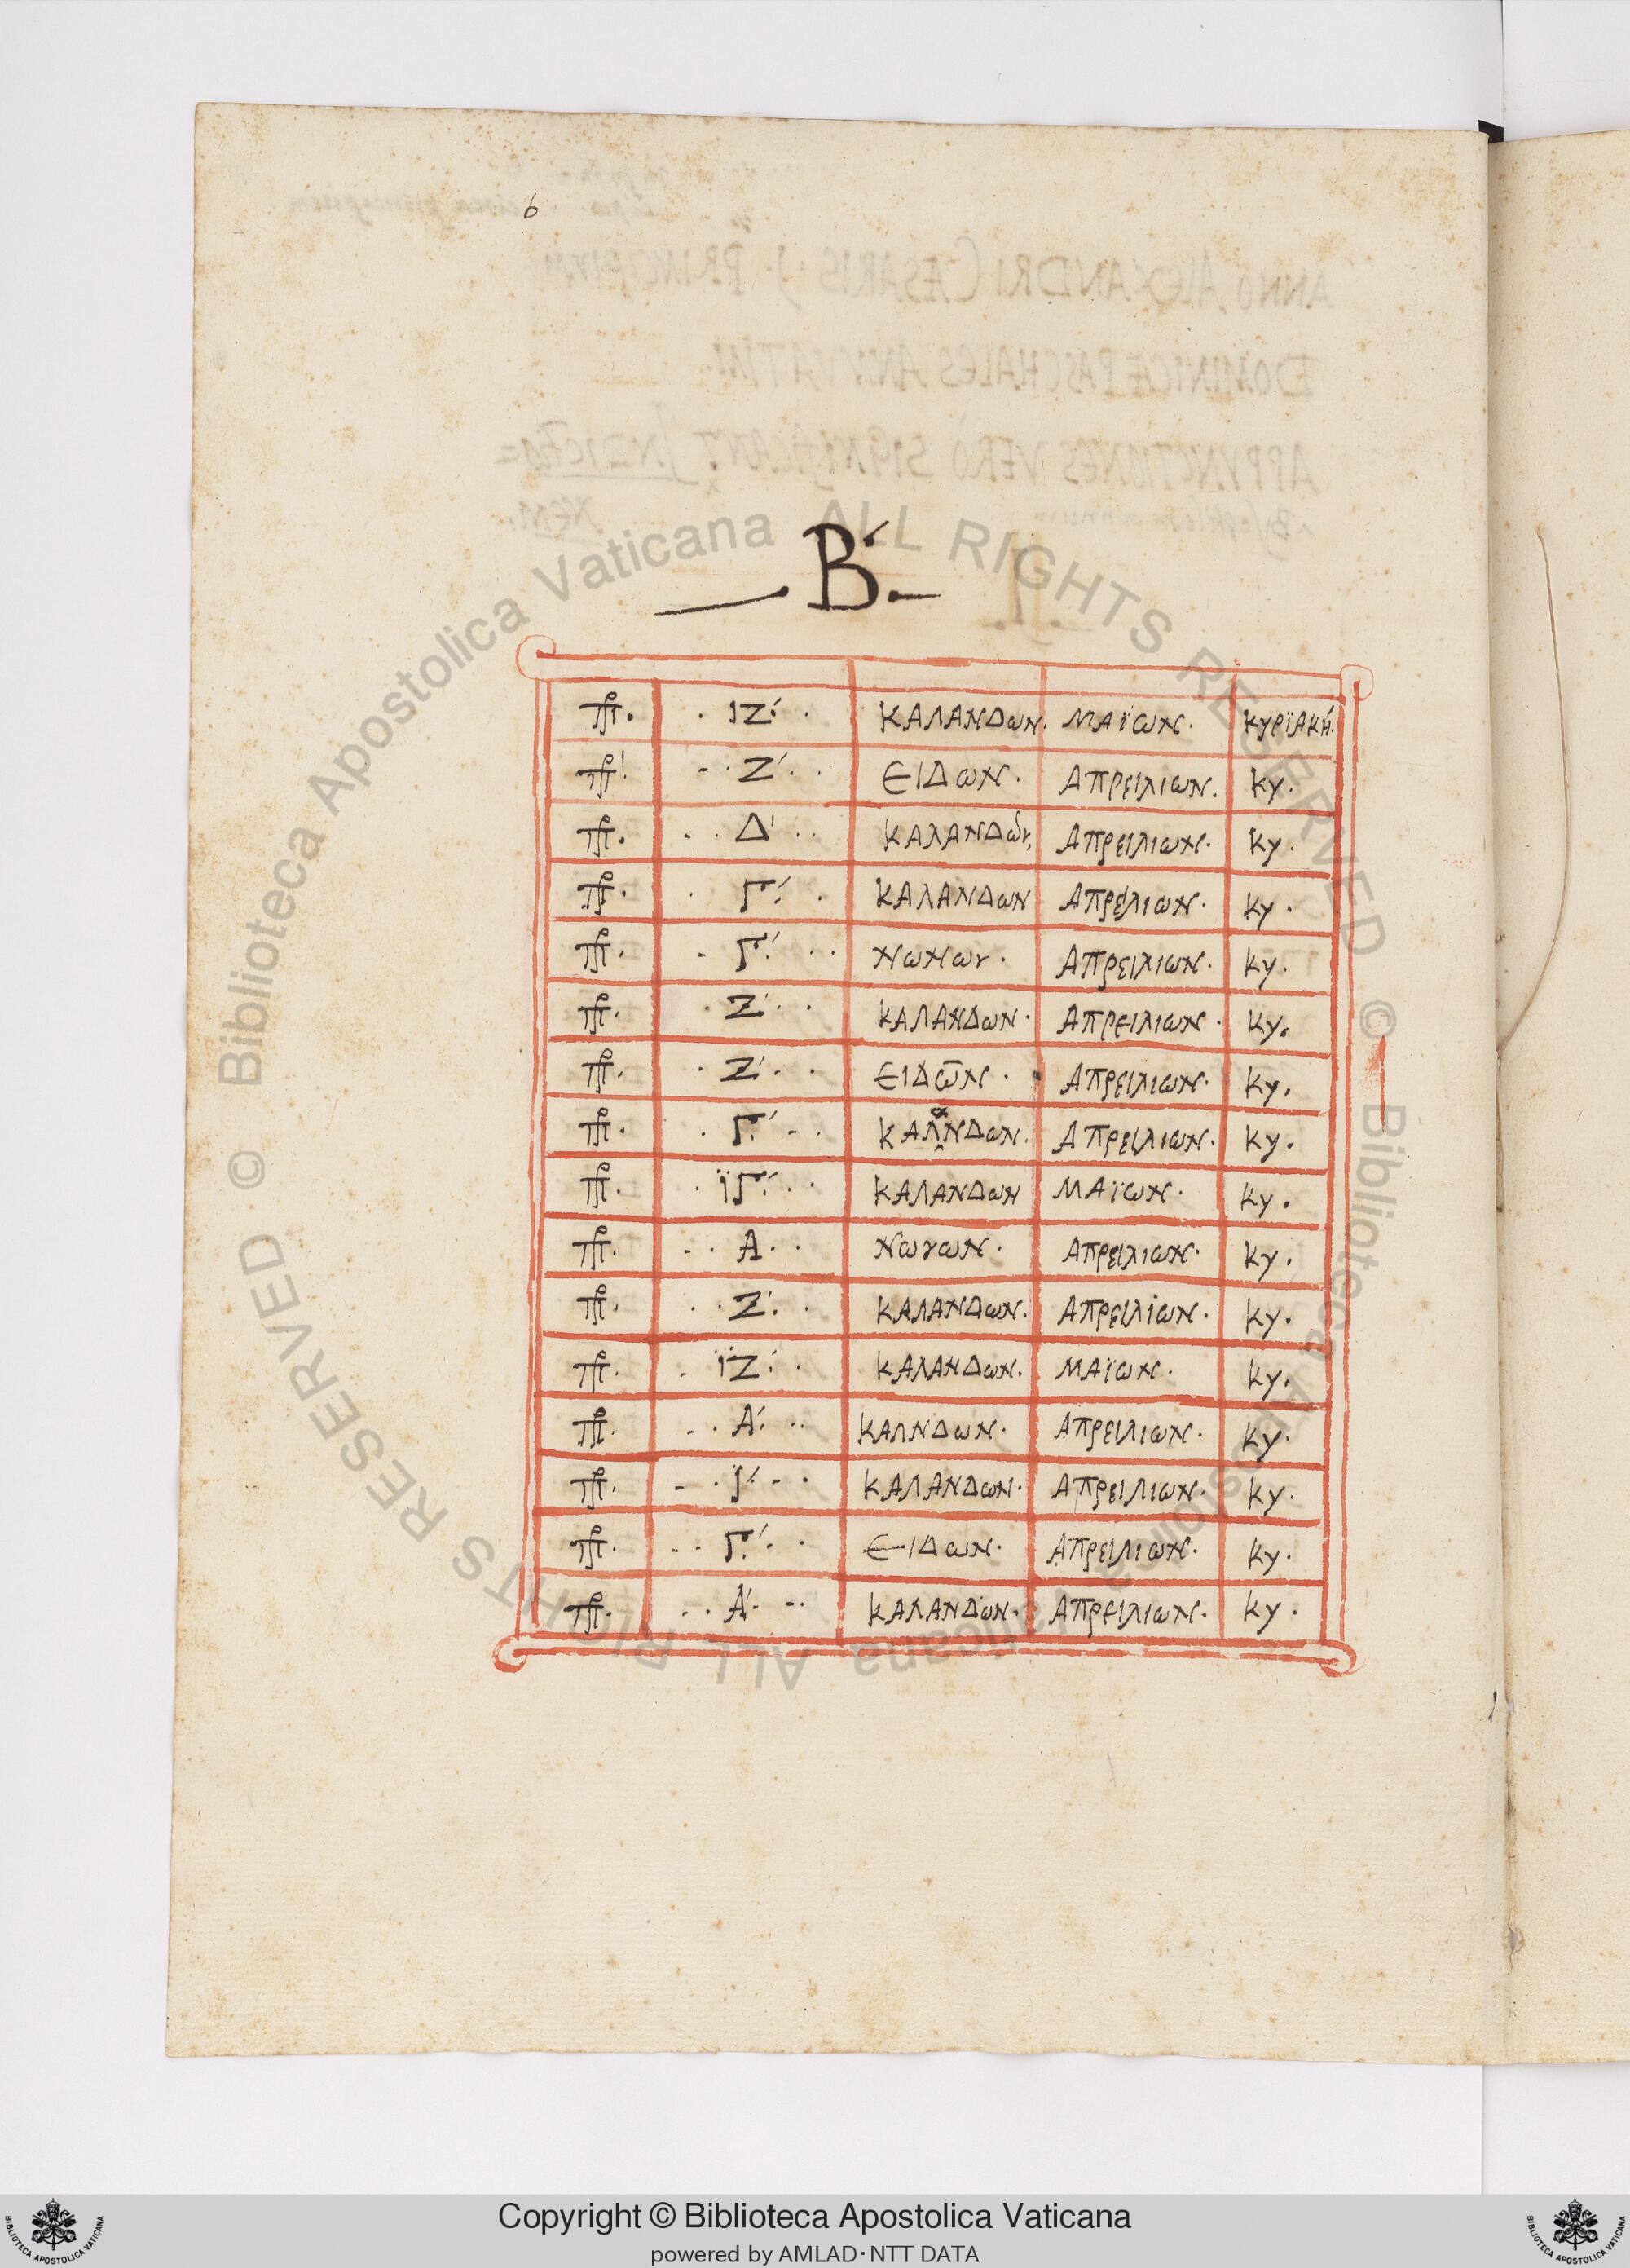 6
Β΄.
πρ. · ΙΖ΄ · ΚΑΛΑΝΔωΝ. ΜΑΪωΝ. ΚΥΡΪΑΚΉ.
πρ. Ζ΄ ΕΙΔωΝ. ΑΠΡΕΙΛΙωΝ. ΚΥ.
πρ. Δ΄ ΚΑΛΑΝΔῶν. ΑΠΡΕΙΛΙωΝ. ΚΥ.
πρ. Γ΄ ΚΑΛΑΝΔωΝ ΑΠΡΕΙΛΙωΝ. ΚΥ.
πρ. Γ΄ ΝωΝων. ΑΠΡΕΙΛΙωΝ. ΚΥ.
πρ. Ζ΄ ΚΑΛΑΝΔωΝ. ΑΠΡΕΙΛΙωΝ. ΚΥ.
πρ. Ζ΄ ΕΙΔω̅Ν. ΑΠΡΕΙΛΙωΝ. ΚΥ.
πρ. Γ΄ ΚΑΛαΝΔωΝ. ΑΠΡΕΙΛΙωΝ. ΚΥ.
πρ. ΪΓ΄ ΚΑΛΑΝΔωΝ ΜΑΪωΝ. ΚΥ.
πρ. Α ΝωνωΝ. ΑΠΡΕΙΛΙωΝ. ΚΥ.
πρ. Ζ΄ ΚΑΛΑΝΔωΝ. ΑΠΡΕΙΛΙωΝ. ΚΥ.
πρ. ΪΖ΄ ΚΑΛΑΝΔωΝ. ΜΑΪωΝ. ΚΥ.
πρ. Α΄ ΚΑΛΝΔωΝ. ΑΠΡΕΙΛΙωΝ. ΚΥ.
πρ. ΚΑΛΑΝΔωΝ. ΑΠΡΕΙΛΙωΝ. ΚΥ.
πρ. Γ΄ ΕΙΔωΝ. ΑΠΡΕΙΛΙωΝ. ΚΥ.
πρ. Α΄ ΚΑΛΑΝΔωΝ. ΑΠΡΕΙΛΙωΝ. ΚΥ.
© Biblioteca Apostolica Vaticana ALL RIGHTS RESERVED © Biblioteca Apostolica Vaticana ALL RIGHTS RESERVED
Copyright © Biblioteca Apostolica Vaticana
powered by AMLAD·NTT DATA
BIBLIOTECA APOSTOLICA VATICANA
BIBLIOTECA APOSTOLICA VATICANA